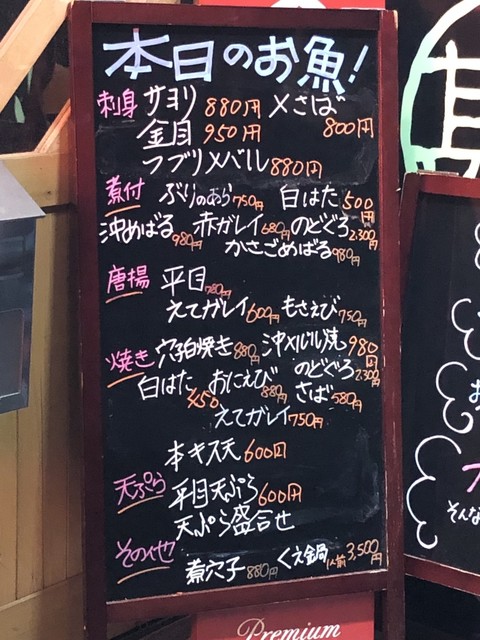 本日のお魚!
刺身 サヨリ 880円 〆さば 800円
金目 950円
ツブリメバル 880円
煮付 ぶりのあら 750円 白はた 500円
沖めばる 980円 赤ガレイ 680円 のどぐろ 2,300円
かさごめばる 980円
唐揚 平目 780円
えてガレイ 600円 もさえび 750円
焼き 穴子白焼き 880円 沖メバル焼 980円
白はた 450. おにえび 880円 のどぐろ 2,300円
さば 580円
えてガレイ 750円
本キス天 600円
天ぷら 平目天ぷら 600円
天ぷら盛合せ
その他 煮穴子 880円 くえ鍋 1人前 3,500円
そんな
Premium